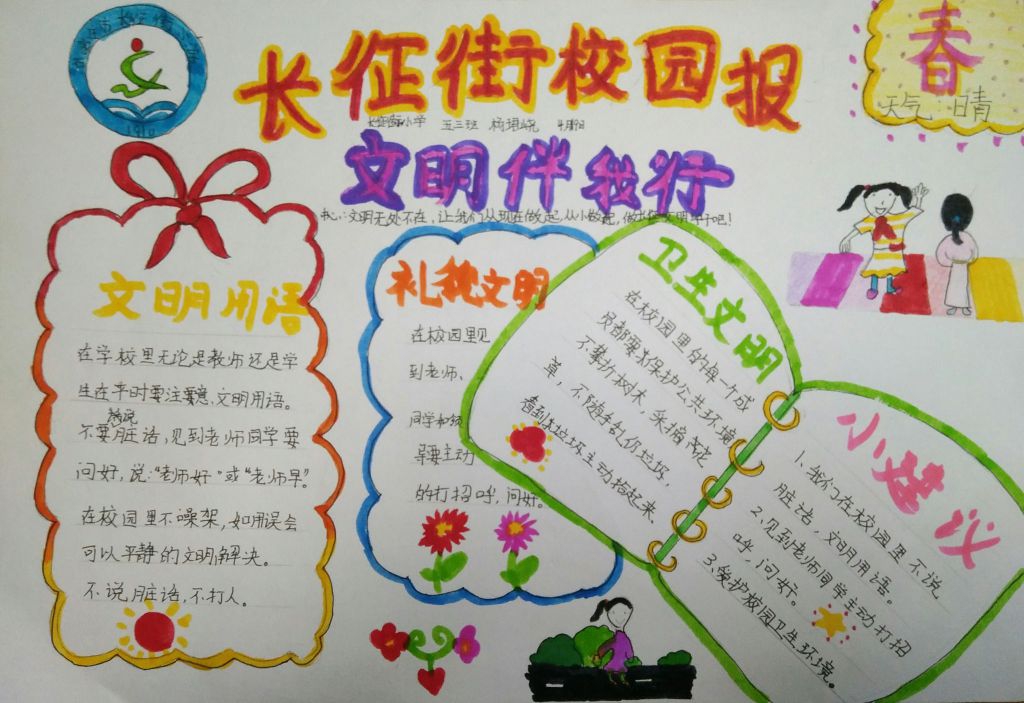 长征街校园报
长征街小学 五三班 杨珺峣 4月19日
文明伴我行
文明无处不在,让我们从现在做起,从小做起,做
春
天气 晴
1910
文明用语
在学校里无论是教师还是学
生在平时要注意文明用语。
不要说脏话,见到老师同学要
问好,说:“老师好”或“老师早”。
在校园里不噪架,如用误会
可以平静的文明解决。
不说脏话,不打人。
礼貌文明
在校园里见
到老师、
同学和领
导要主动
的打招呼,问好。
卫生文明
在校园里的每一个成
员都要求保护公共环境
不攀折树木,采摘花
草,不随手乱仍垃圾,
看到垃圾主动捨起来。
小建议
1、我们在校园里不说
脏话,文明用语。
2、见到老师同学主动打招
呼,问好。
3、爱护校园卫生环境。